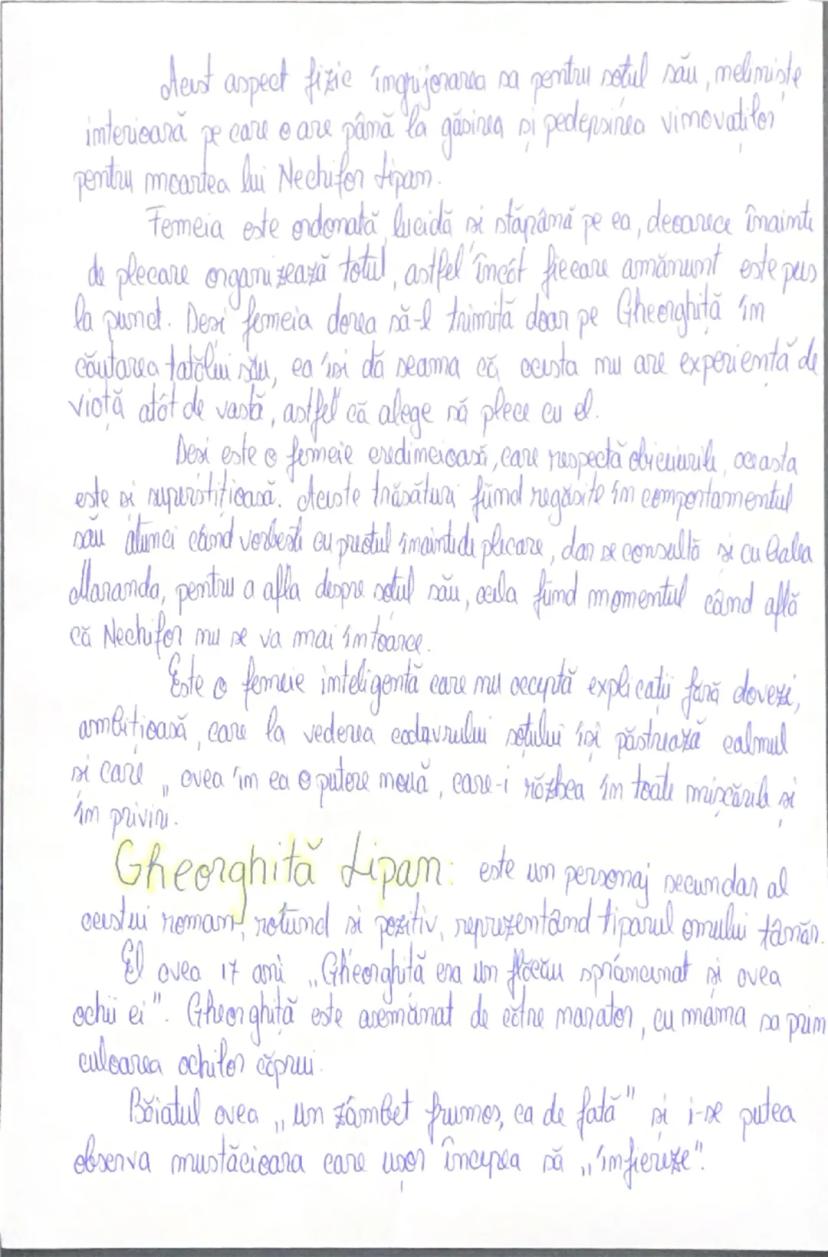 Acest aspect fizic îngrijorarea sa pentru soțul său, neliniște
interioară pe care o are până la găsirea și pedepsirea vinovaților
pentru moartea lui Nechifor Lipan.
Femeia este ordonată, lucidă si stăpână pe ea, deoarece înainte
de plecare organizează totul, astfel încât fiecare amănunt este pus
la punct. Desi femeia dorea să-l trimită doar pe Gheorghiță în
căutarea tatălui său, ea își dă seama că acesta nu are experiență de
viață atât de vastă, astfel că alege să plece cu el.
Desi este o femeie credincioasă, care respectă obiceiurile, aceasta
este si superstițioasă. Aceste trăsături fiind regăsite în comportamentul
său atunci când vorbesti cu preotul înainte de plecare, dar se consultă si cu Baba
Maranda, pentru a afla despre soțul său, acela fiind momentul când află
că Nechifor nu se va mai întoarce.
Este o femeie inteligentă care nu acceptă explicații fără dovezi,
ambițioasă, care la vederea cadavrului soțului își păstrează calmul
si care „avea în ea o putere nouă, care-i răzbea în toate mișcările și
în priviri.
Gheorghiță Lipan: este un personaj secundar al
acestui roman, rotund si pozitiv, reprezentând tiparul omului tânăr.
El avea 17 ani „Gheorghiță era un flăcău sprâncenat și avea
ochii ei". Gheorghiță este asemănat de către narator, cu mama sa prin
culoarea ochilor căprui.
Băiatul avea „un zâmbet frumos, ca de fată" și i-se putea
observa mustăcioara care ușor începea să „înfiereze".